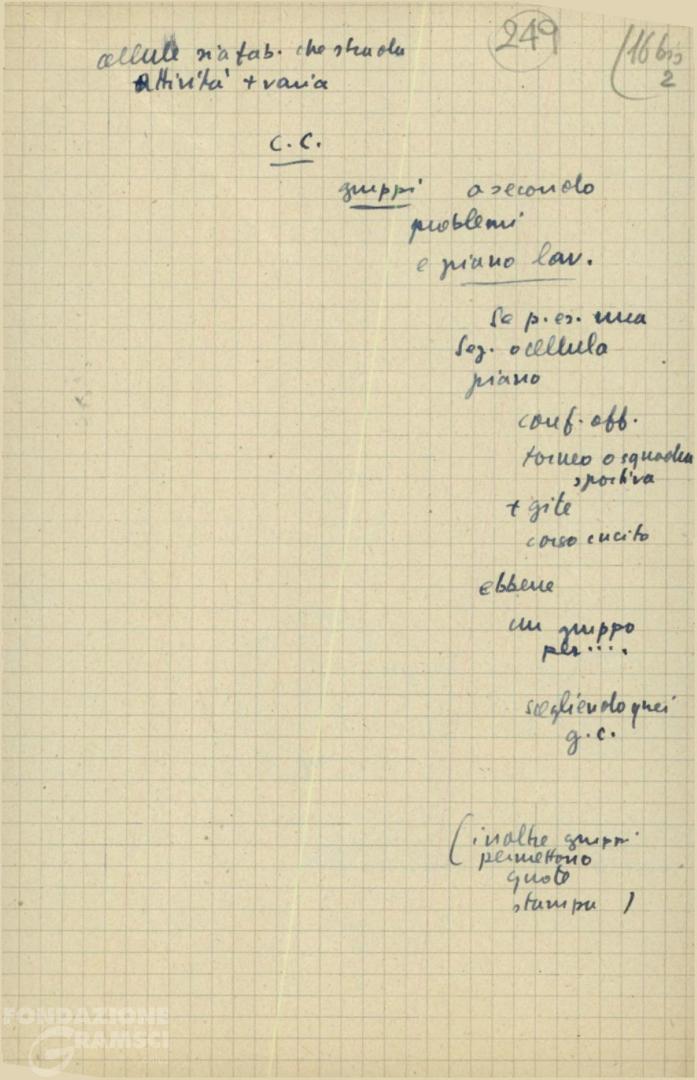 249
16 bis
2
cellule sia fab. che strada
attività + varia
C.C.
gruppi a secondo
problemi
e piano lav.
Se p.es. una
Sez. o cellula
piano
conf. off.
torneo o squadra
sportiva
+ gite
corso cucito
ebbene
un gruppo
per....
scegliendo quei
g.c.
(inoltre gruppi
permettono
quote
stampa)
FONDAZIONE
GRAMSCI